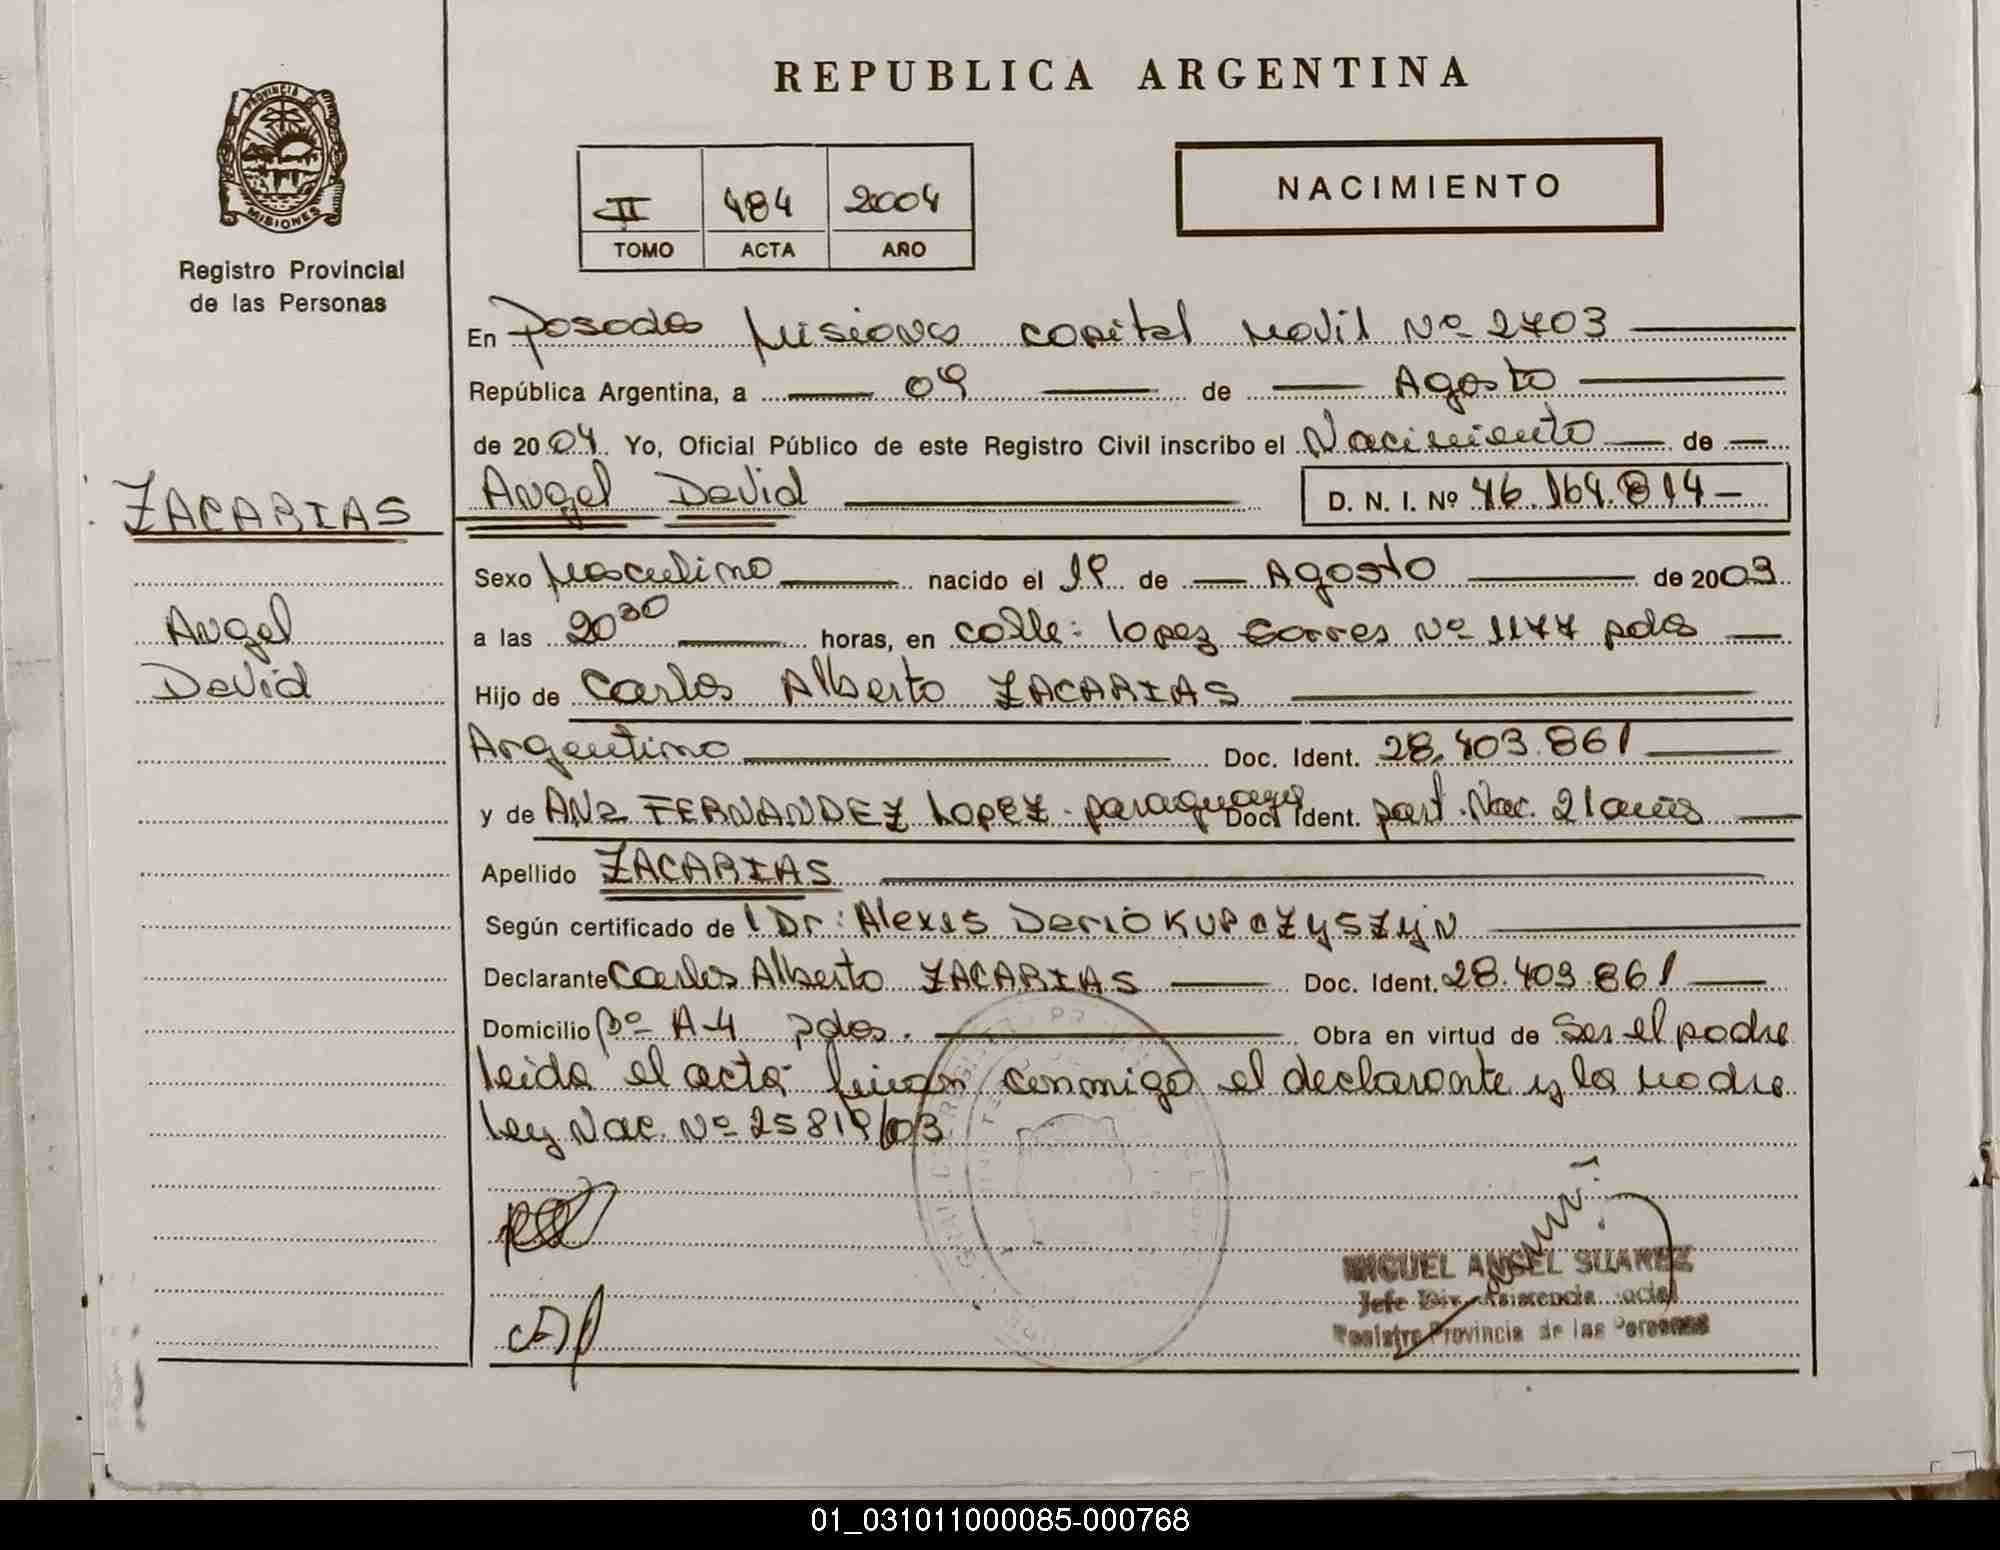 REPUBLICA ARGENTINA
PROVINCIA DE
MISIONES
Registro Provincial
de las Personas
II 484 2004
TOMO ACTA AÑO
NACIMIENTO
En Posadas Misiones capital Movil Nº 2703
República Argentina, a 09 de Agosto
de 2004. Yo, Oficial Público de este Registro Civil inscribo el Nacimiento de
ZACARIAS
Angel David D. N. I. Nº 46.164.814
Sexo Masculino nacido el 19 de Agosto de 2003
Angel
a las 20 30 horas, en calle: lopez torres Nº 1177 pdas
David
Hijo de Carlos Alberto ZACARIAS
Argentino Doc. Ident. 28.403.861
y de ANa FERNANDEZ LOPEZ - paraguaya Doc. Ident. part. Nac. 21 años
Apellido ZACARIAS
Según certificado de l Dr: Alexis Dario KUPCZYSZYN
Declarante Carlos Alberto ZACARIAS Doc. Ident. 28.403.861
Domicilio Bº A-4 pdas. Obra en virtud de Ser el padre
leida el acta firman conmigo el declarante y la madre
ley Nac. Nº 25819/03
MIGUEL ANGEL SUAREZ
Jefe Div. Asistencia Social
Registro Provincia de las Personas
01_031011000085-000768